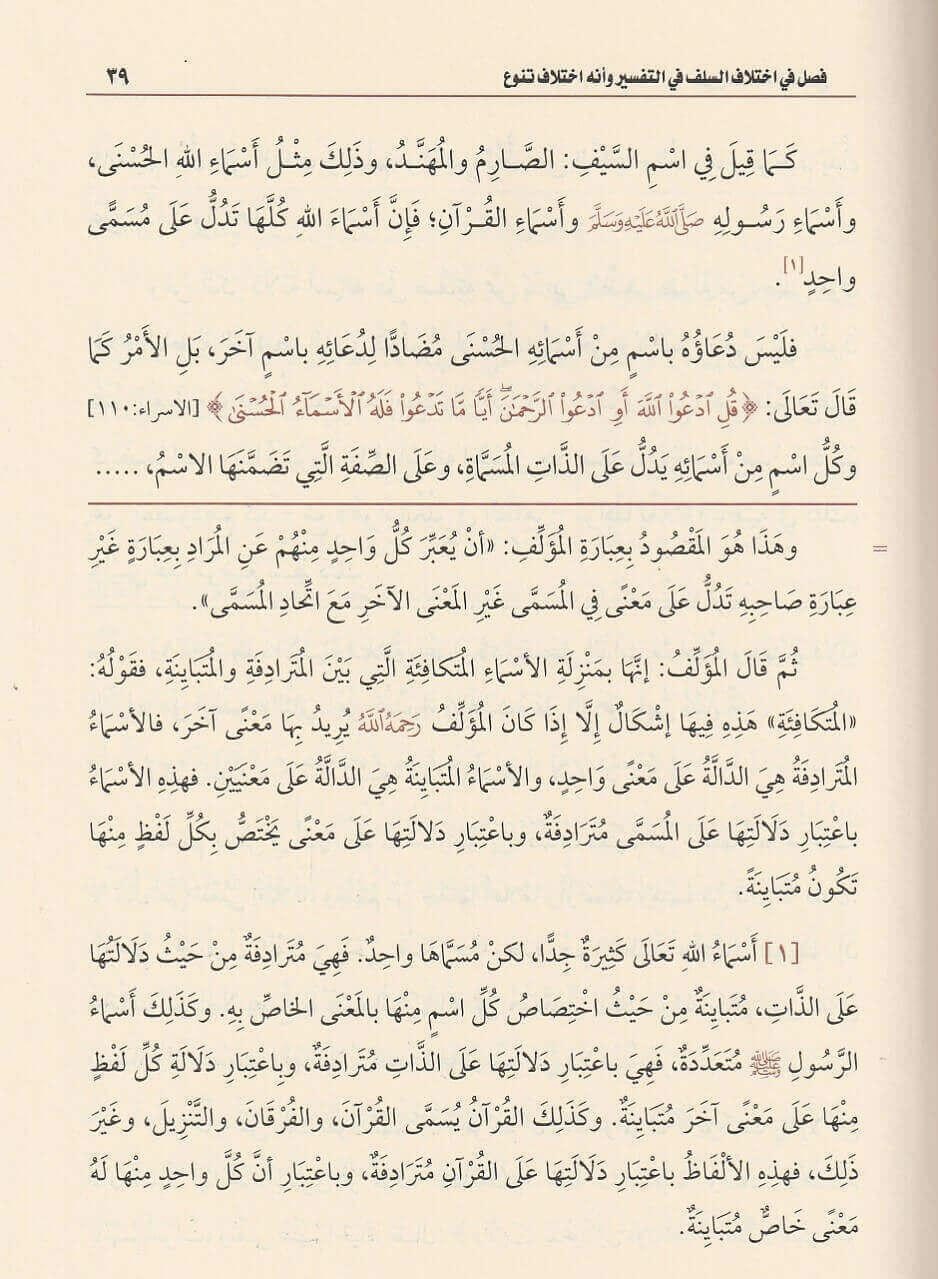 فصل في اختلاف السلف في التفسير وأنه اختلاف تنوع ٣٩
كَمَا قِيلَ فِي اسْمِ السَّيْفِ: الصَّارِمُ والْمُهَنَّدُ، وذَلِكَ مِثْلُ أَسْمَاءِ اللهِ الحُسْنَى،
وأَسْمَاءِ رَسُولِهِ صَلَّى اللَّهُ عَلَيْهِ وَسَلَّمَ وأَسْمَاءِ القُرْآنِ؛ فَإِنَّ أَسْمَاءَ اللهِ كُلَّهَا تَدُلُّ عَلَى مُسَمًّى
واحِدٍ[١].
فَلَيْسَ دُعَاؤُهُ باسْمٍ مِنْ أَسْمَائِهِ الحُسْنَى مُضَادًّا لِدُعَائِهِ باسْمٍ آخَرَ، بَلِ الأَمْرُ كَمَا
قَالَ تَعَالَى: ﴿قُلِ ٱدْعُوا۟ ٱللَّهَ أَوِ ٱدْعُوا۟ ٱلرَّحْمَٰنَ ۖ أَيًّا مَّا تَدْعُوا۟ فَلَهُ ٱلْأَسْمَآءُ ٱلْحُسْنَىٰ﴾ [الاسراء:١١٠]
وكُلُّ اسْمٍ مِنْ أَسْمَائِهِ يَدُلُّ عَلَى الذَّاتِ المُسَمَّاةِ، وعَلَى الصِّفَةِ الَّتِي تَضَمَّنَهَا الاسْمُ، .....
= وهَذَا هُوَ المَقْصُودُ بِعِبَارَةِ المُؤَلِّفِ: «أنْ يُعَبِّرَ كُلُّ وَاحِدٍ مِنْهُمْ عَنِ المُرَادِ بِعِبَارَةٍ غَيْرِ
عِبَارَةِ صَاحِبِهِ تَدُلُّ عَلَى مَعْنًى فِي المُسَمَى غَيْرِ المَعْنَى الآخَرِ مَعَ اتِّحَادِ المُسَمَّى».
ثُمَّ قَالَ المُؤَلِّفُ: إنَّهَا بِمَنْزِلَةِ الأسْمَاءِ المُتَكافِئَةِ الَّتِي بَيْنَ المُتَرَادِفَةِ والمُتَبَايِنَةِ، فقَوْلُهُ:
«المُتَكافِئَةِ» هَذِهِ فِيهَا إشْكَالٌ إلَّا إذَا كَانَ المُؤَلِّفُ رَحِمَهُ اللَّهُ يُرِيدُ بِهَا مَعْنًى آخَرَ، فالأسْمَاءُ
المُتَرادِفَةُ هِيَ الدَّالَّةُ عَلَى مَعْنًى وَاحِدٍ، والأسْمَاءُ المُتَبايِنَةُ هِيَ الدَّالَّةُ عَلَى مَعْنَيَيْنِ. فهذِهِ الأسْمَاءُ
باعْتِبَارِ دَلَالَتِهَا عَلَى المُسَمَّى مُتَرَادِفَةٌ، وباعْتِبَارِ دَلالَتِهَا عَلَى مَعْنًى يَخْتَصُّ بِكُلِّ لَفْظٍ مِنْهَا
تَكُونُ مُتَبَايِنَةً.
[١] أَسْمَاءُ اللهِ تَعَالَى كَثِيرَةٌ جِدًّا، لكنْ مُسَمَّاهَا واحِدٌ. فَهِيَ مُتَرادِفَةٌ مِنْ حَيْثُ دَلَالَتُهَا
عَلَى الذَّاتِ، مُتَبايِنَةٌ مِنْ حَيْثُ اخْتِصَاصُ كُلِّ اسْمٍ مِنْهَا بالمَعْنَى الخاصِّ بِهِ. وكَذَلِكَ أَسْمَاءُ
الرَّسُولِ ﷺ مُتَعَدِّدَةٌ، فَهِيَ باعْتِبَارِ دَلَالَتِهَا عَلَى الذَّاتِ مُتَرادِفَةٌ، وبِاعْتِبَارِ دَلَالَةِ كُلِّ لَفْظٍ
مِنْهَا عَلَى مَعْنًى آخَرَ مُتَبَايِنَةٌ. وكَذَلِكَ القُرْآنُ يُسَمَى القُرْآنَ، والفُرْقَانَ، والتَّنْزِيلَ، وغَيْرَ
ذَلِكَ، فهذِهِ الألْفَاظُ باعْتِبَارِ دَلَالَتِهَا عَلَى القُرْآنِ مُتَرادِفَةٌ، وباعْتِبَارِ أنَّ كُلَّ واحِدٍ مِنْهَا لَهُ
مَعْنًى خَاصٌّ مُتَبايِنَةٌ.